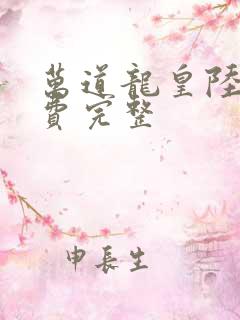 萬道龍皇陸
費完整
申長生